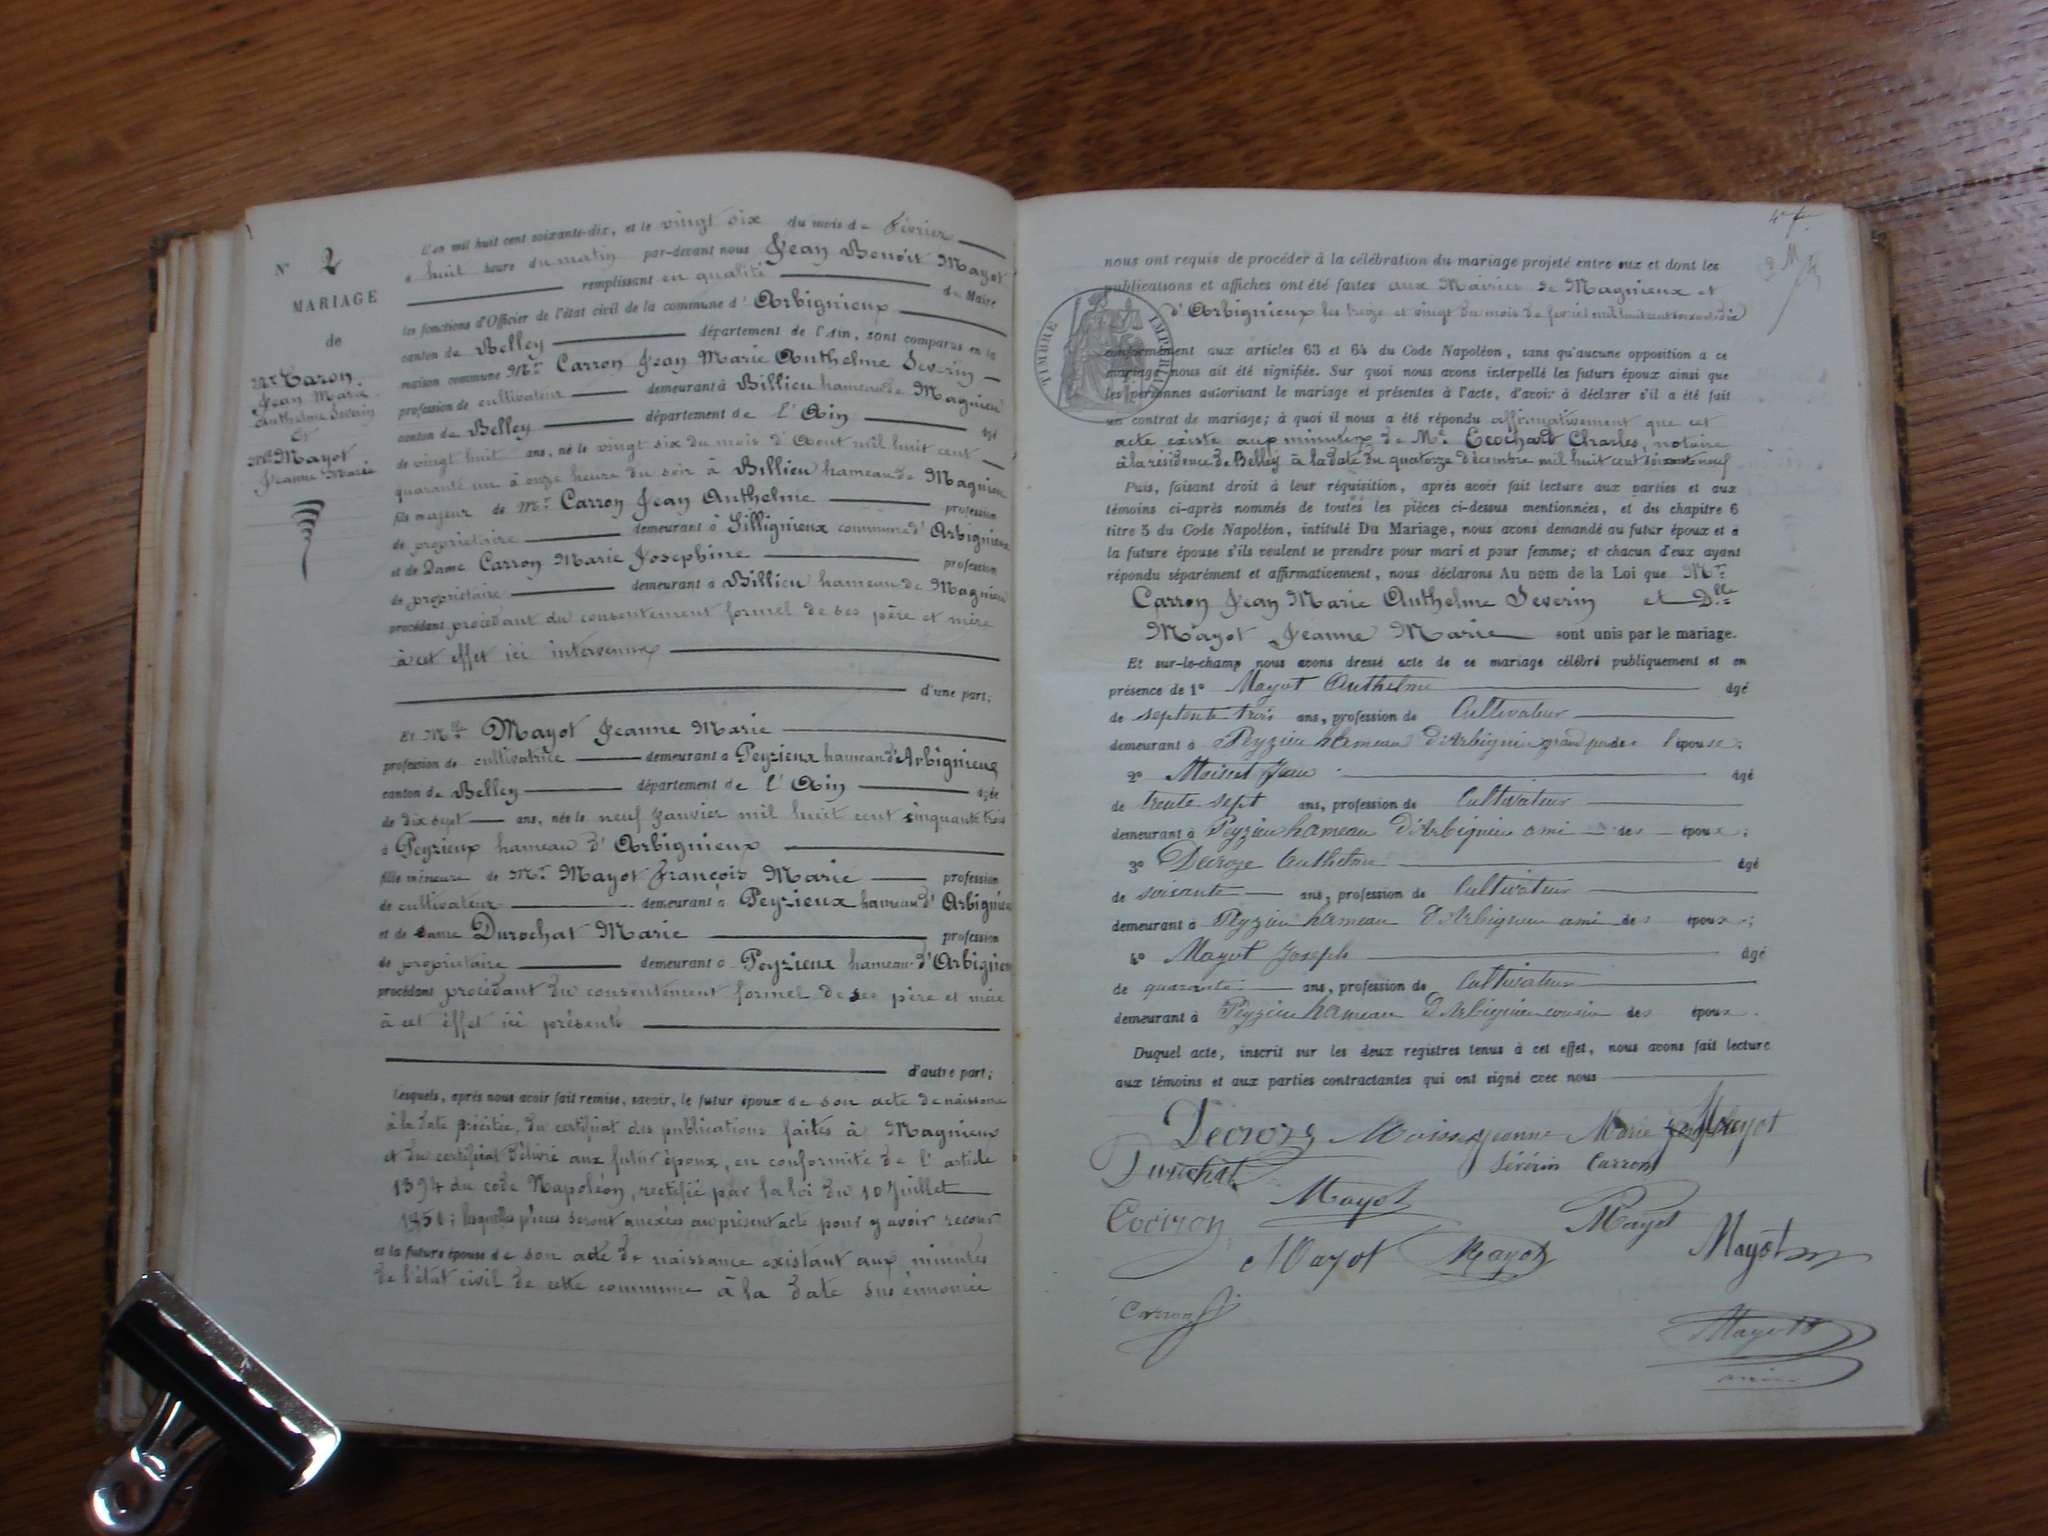 N° 2
MARIAGE
de
Mr Caron
Jean Marie
Anthelme Severin
et
Mlle Mayot
Jeanne Marie
L'an mil huit cent soixante-dix, et le vingt six du mois de Février
à huit heure du matin par-devant nous Jean Benoît Mayot
remplissant en qualité de Maire
les fonctions d'Officier de l'état civil de la commune d'Arbignieux
canton de Belley département de l'Ain, sont comparus en la
maison commune Mr Carron Jean Marie Anthelme Severin
profession de cultivateur demeurant à Billieu hameau de Magnieu
canton de Belley département de l'Ain âgé
de vingt huit ans, né le vingt six du mois d'Aout mil huit cent
quarante un à onze heure du soir à Billieu hameau de Magnieu
fils majeur de Mr Carron Jean Anthelme profession
de propriétaire demeurant à Sillignieux commune d'Arbignieux
et de Dame Carron Marie Josephine profession
de propriétaire demeurant à Billieu hameau de Magnieu
procédant procédant du consentement formel de ses père et mère
à cet effet ici intervenux
d'une part;
Et Mlle Mayot Jeanne Marie
profession de cultivatrice demeurant à Peyzieux hameau d'Arbignieux
canton de Belley département de l'Ain âgée
de dix sept ans, née le neuf Janvier mil huit cent cinquante trois
à Peyzieux hameau d'Arbignieux
fille mineure de Mr Mayot François Marie profession
de cultivateur demeurant à Peyzieux hameau d'Arbignieux
et de Dame Durochat Marie profession
de propriétaire demeurant à Peyzieux hameau d'Arbignieux
procédant procédant du consentement formel de ses père et mère
à cet éffet ici présents
d'autre part;
Lesquels, après nous avoir fait remise, savoir, le futur époux de son acte de naissance
à la date précitée, du certificat des publications faites à Magnieux
et du certificat délivré aux futur époux, en conformité de l'article
1394 du code Napoléon, rectifié par la loi du 10 Juillet
1850; lesquelles pièces seront anexées au présent acte pour y avoir recour
et la future épouse de son acte de naissance existant aux minutes
de l'état civil de cette commune à la date sus énoncée
nous ont requis de procéder à la célébration du mariage projeté entre eux et dont les
publications et affiches ont été faites aux Mairies de Magnieux et
d'Arbignieux les treize et vingt du mois de fevrier mil huit cent soixante dix
TIMBRE IMPERIAL
conformément aux articles 63 et 64 du Code Napoléon, sans qu'aucune opposition à ce
mariage nous ait été signifiée. Sur quoi nous avons interpellé les futurs époux ainsi que
les personnes autorisant le mariage et présentes à l'acte, d'avoir à déclarer s'il a été fait
un contrat de mariage; à quoi il nous a été répondu affirmativement que cet
acte existe aux minutes de Me Trochard Charles, notaire
à la résidence de Belley à la date du quatorze décembre mil huit cent soixante neuf
Puis, faisant droit à leur réquisition, après avoir fait lecture aux parties et aux
témoins ci-après nommés de toutes les pièces ci-dessus mentionnées, et du chapitre 6
titre 5 du Code Napoléon, intitulé Du Mariage, nous avons demandé au futur époux et à
la future épouse s'ils veulent se prendre pour mari et pour femme; et chacun d'eux ayant
répondu séparément et affirmativement, nous déclarons Au nom de la Loi que Mr
Carron Jean Marie Anthelme Severin et Dlle
Mayot Jeanne Marie sont unis par le mariage.
Et sur-le-champ nous avons dressé acte de ce mariage célébré publiquement et en
présence de 1° Mayot Anthelme âgé
de septente trois ans, profession de Cultivateur
demeurant à Peyzieu hameau d'Arbignieu grand père de l'épouse;
2° Moisset Jean âgé
de trente sept ans, profession de Cultivateur
demeurant à Peyzieu hameau d'Arbignieu ami des époux;
3° Decroze Anthelme âgé
de soixante ans, profession de Cultivateur
demeurant à Peyzieu hameau d'Arbignieu ami des époux;
4° Mayot Joseph âgé
de quarante ans, profession de Cultivateur
demeurant à Peyzieu hameau d'Arbignieu cousin des époux.
Duquel acte, inscrit sur les deux registres tenus à cet effet, nous avons fait lecture
aux témoins et aux parties contractantes qui ont signé avec nous
Decroze Jeanne Marie Mayot
Durochat Sévérin Carron
Mayot Mayot
Mayot Mayot Mayot
Carron
Mayot